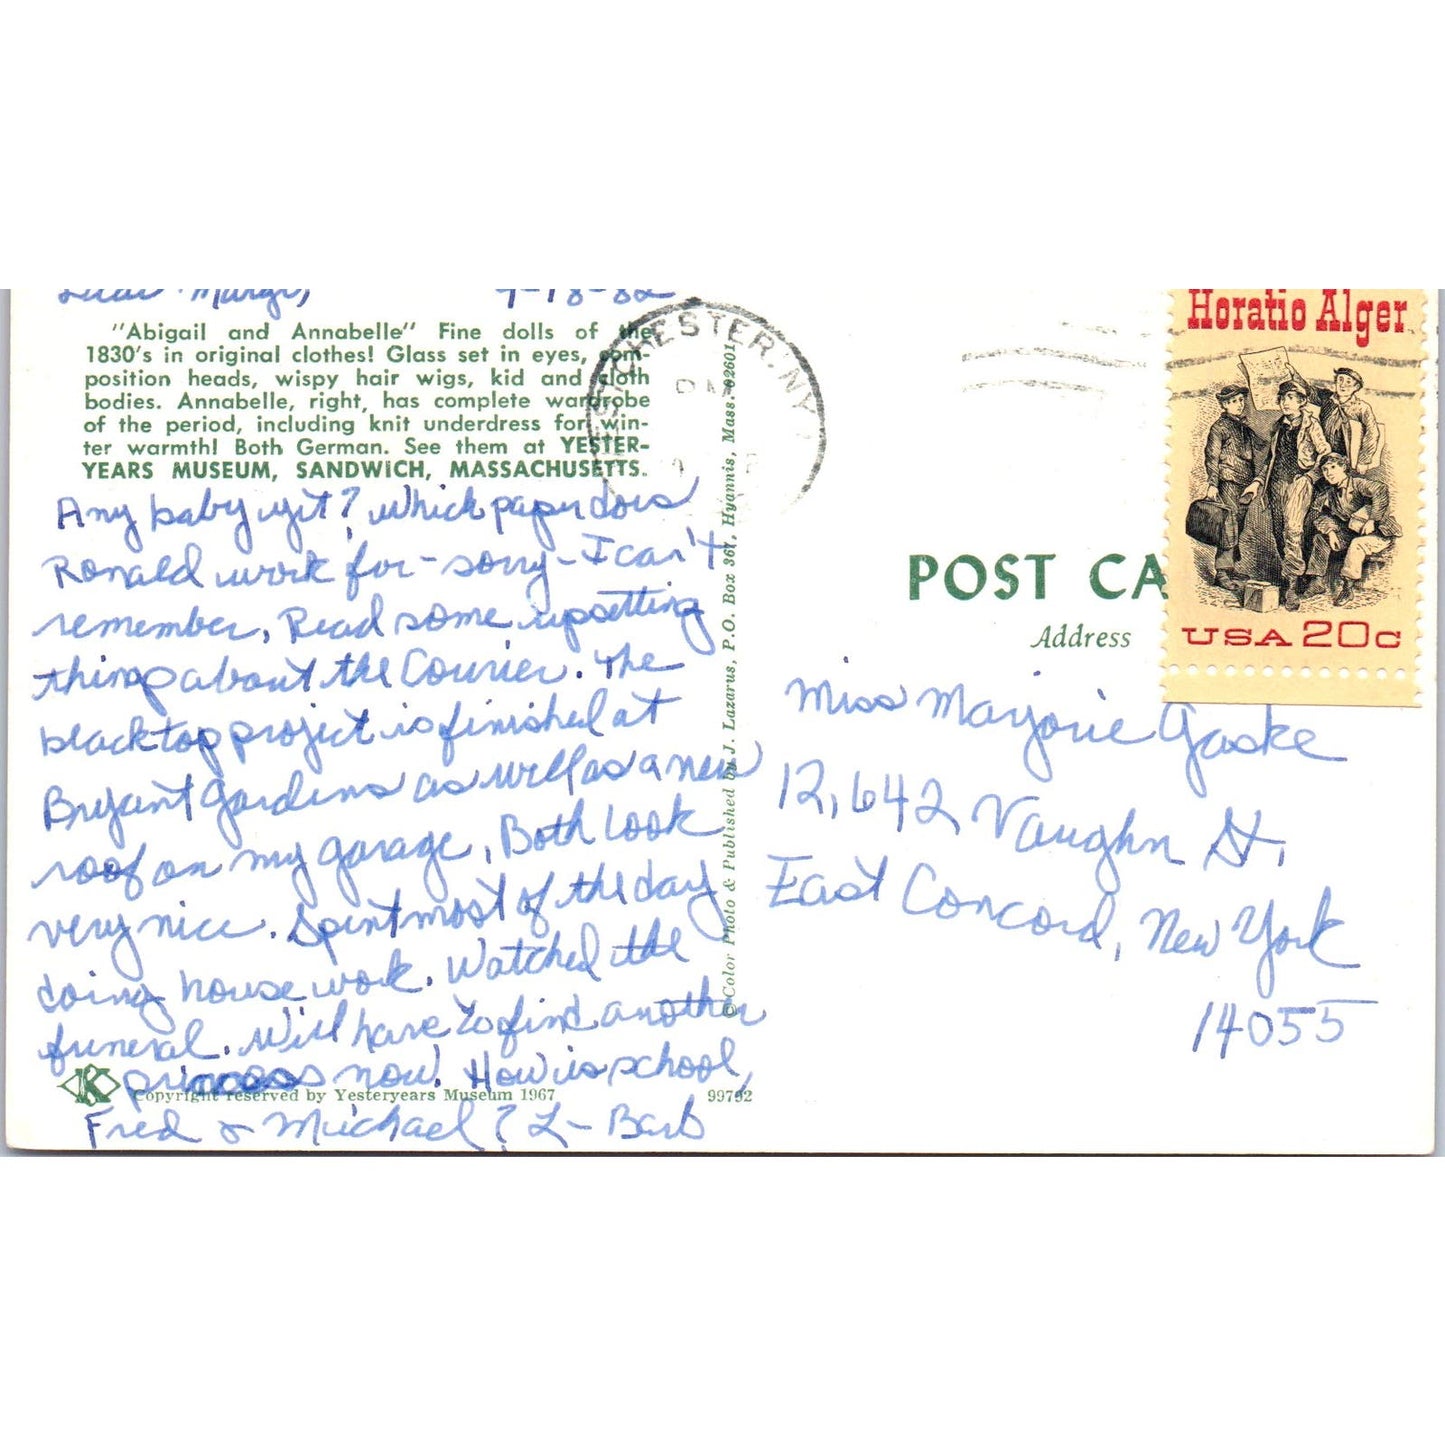 Dear Margi, 9-18-82
"Abigail and Annabelle" Fine dolls of the
1830's in original clothes! Glass set in eyes, com-
position heads, wispy hair wigs, kid and cloth
bodies. Annabelle, right, has complete wardrobe
of the period, including knit underdress for win-
ter warmth! Both German. See them at YESTER-
YEARS MUSEUM, SANDWICH, MASSACHUSETTS.
Any baby yet? Which paper does
Ronald work for - sorry - I can't
remember. Read some upsetting
things about the Courier. The
blacktop project is finished at
Bryant Gardens as well as a new
roof on my garage. Both look
very nice. Spent most of the day
doing house work. Watched the
funeral. Will have to find another
princess now! How is school,
Fred & Michael? L- Barb
K
Copyright reserved by Yesteryears Museum 1967
99792
© Color Photo & Published by J. Lazarus, P.O. Box 367, Hyannis, Mass. 02601
CHESTER, NY
PM
Horatio Alger
USA 20c
POST CA
Address
Miss Marjorie Gaske
12,642 Vaughn St.
East Concord, New York
14055